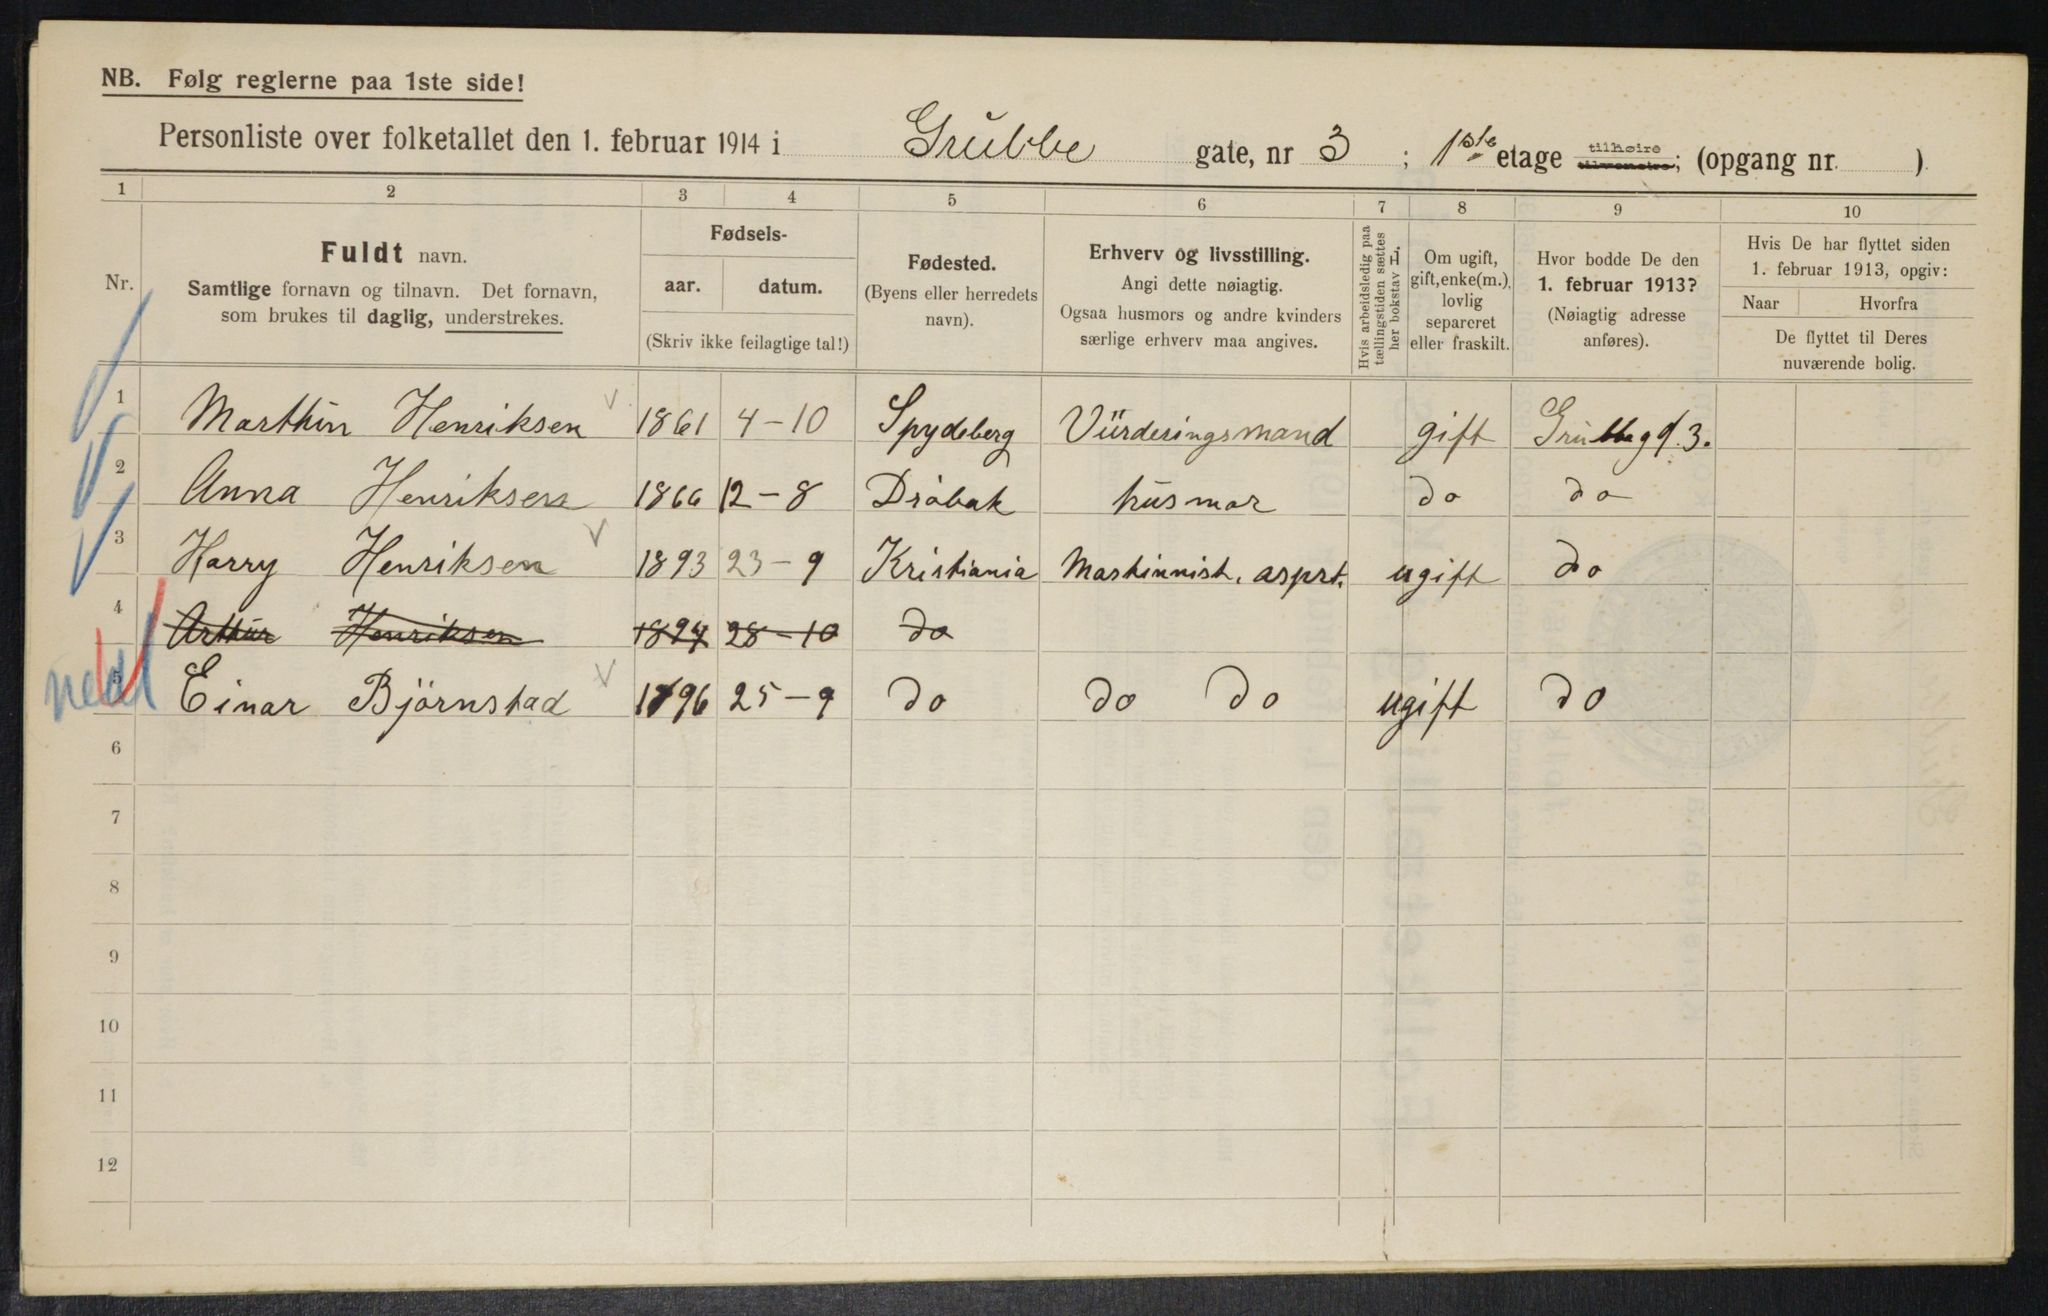 NB. Følg reglerne paa 1ste side!
Personliste over folketallet den 1. februar 1914 i Grubbe gate, nr 3 ; 1ste etage tilhøire tilvenstre; (opgang nr. ).
1 2 3 4 5 6 7 8 9 10
Nr.
Fuldt navn.
Samtlige fornavn og tilnavn. Det fornavn,
som brukes til daglig, understrekes.
Fødsels-
aar. datum.
(Skriv ikke feilagtige tal!)
Fødested.
(Byens eller herredets
navn).
Erhverv og livsstilling.
Angi dette nøiagtig.
Ogsaa husmors og andre kvinders
særlige erhverv maa angives.
Hvis arbeidsledig paa
tællingstiden sættes
her bokstav L.
Om ugift,
gift, enke(m.),
lovlig
separeret
eller fraskilt.
Hvor bodde De den
1. februar 1913?
(Nøiagtig adresse
anføres).
Hvis De har flyttet siden
1. februar 1913, opgiv:
Naar Hvorfra
De flyttet til Deres
nuværende bolig.
1 Marthin Henriksen 1861 4-10 Spydeberg Vürderingsmand gift Grubbegd. 3.
2 Anna Henriksen 1866 12-8 Dröbak husmor do do
3 Harry Henriksen 1893 23-9 Kristiania Maskinnist. asprt. ugift do
4 Arthur Henriksen 1894 28-10 do
5 Einar Björnstad 1896 25-9 do do do ugift do
6
7
8
9
10
11
12